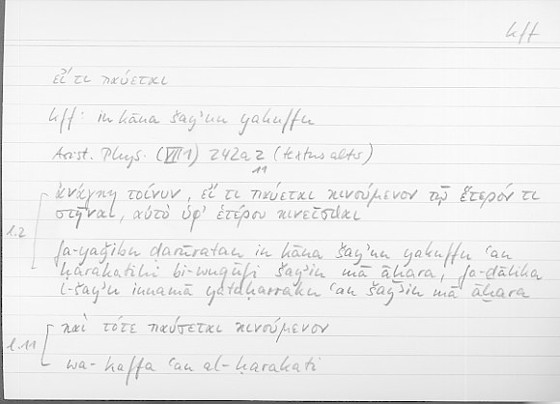 kff
εἴ τι παύεται
kff: in kāna šayʾun yakuffu
Arist. Phys. (VII 1) 242a2 (textus alter)
11
ἀνάγκη τοίνυν, εἴ τι παύεται κινούμενον τῷ ἕτερόν τι
στῆναι, αὐτὸ ὑφ' ἑτέρου κινεῖσθαι
l.2
fa-yaǧibu ḍarūratan in kāna šayʾun yakuffu ʿan
ḥarakatihī bi-wuqūfi šayʾin mā āḫara, fa-ḏālika
l-šayʾu innamā yataḥarraku ʿan šayʾin mā āḫara
l.11
καὶ τότε παύσεται κινούμενον
wa-kaffa ʿan al-ḥarakati